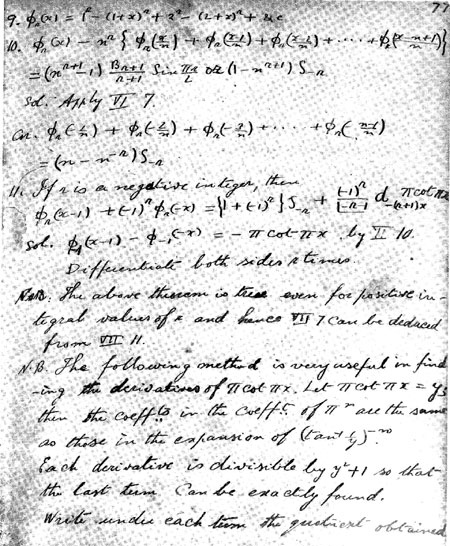 77
9. φ₂(x) = 1² - (1+x)² + 2² - (2+x)² + &c
10. φ_r(x) - n^r { φ_r(x/n) + φ_r((x-1)/n) + φ_r((x-2)/n) + .... + φ_r((x-n+1)/n) }
= (n^{r+1} - 1) B_{r+1}/(r+1) Sin πr/2 or (1 - n^{r+1}) S_{-r}
Sol. Apply VI 7.
Cor. φ_r(-1/n) + φ_r(-2/n) + φ_r(-3/n) + .... + φ_r(-(n-1)/n)
= (n - n^{-r}) S_{-r}
11. If r is a negative integer, then
φ_r(x-1) + (-1)^r φ_r(-x) = {1 + (-1)^r} S_{-r} + (-1)^r/|-r-1 d_{-(r+1)x} π cot πx
Sol. φ_{-1}(x-1) - φ_{-1}(-x) = - π cot πx by VI 10.
Differentiate both sides r times.
N.B. The above theorem is true even for positive in-
tegral values of r and hence VII 7 can be deduced
from VII 11.
N.B. The following method is very useful in find-
-ing the derivatives of π cot πx. Let π cot πx = y,
then the coeff^{ts} in the coeff^t. of π^n are the same
as those in the expansion of (tan⁻¹ 1/y)^{-n}
Each derivative is divisible by y²+1 so that
the last term Can be exactly found.
Write under each term the quotient obtained